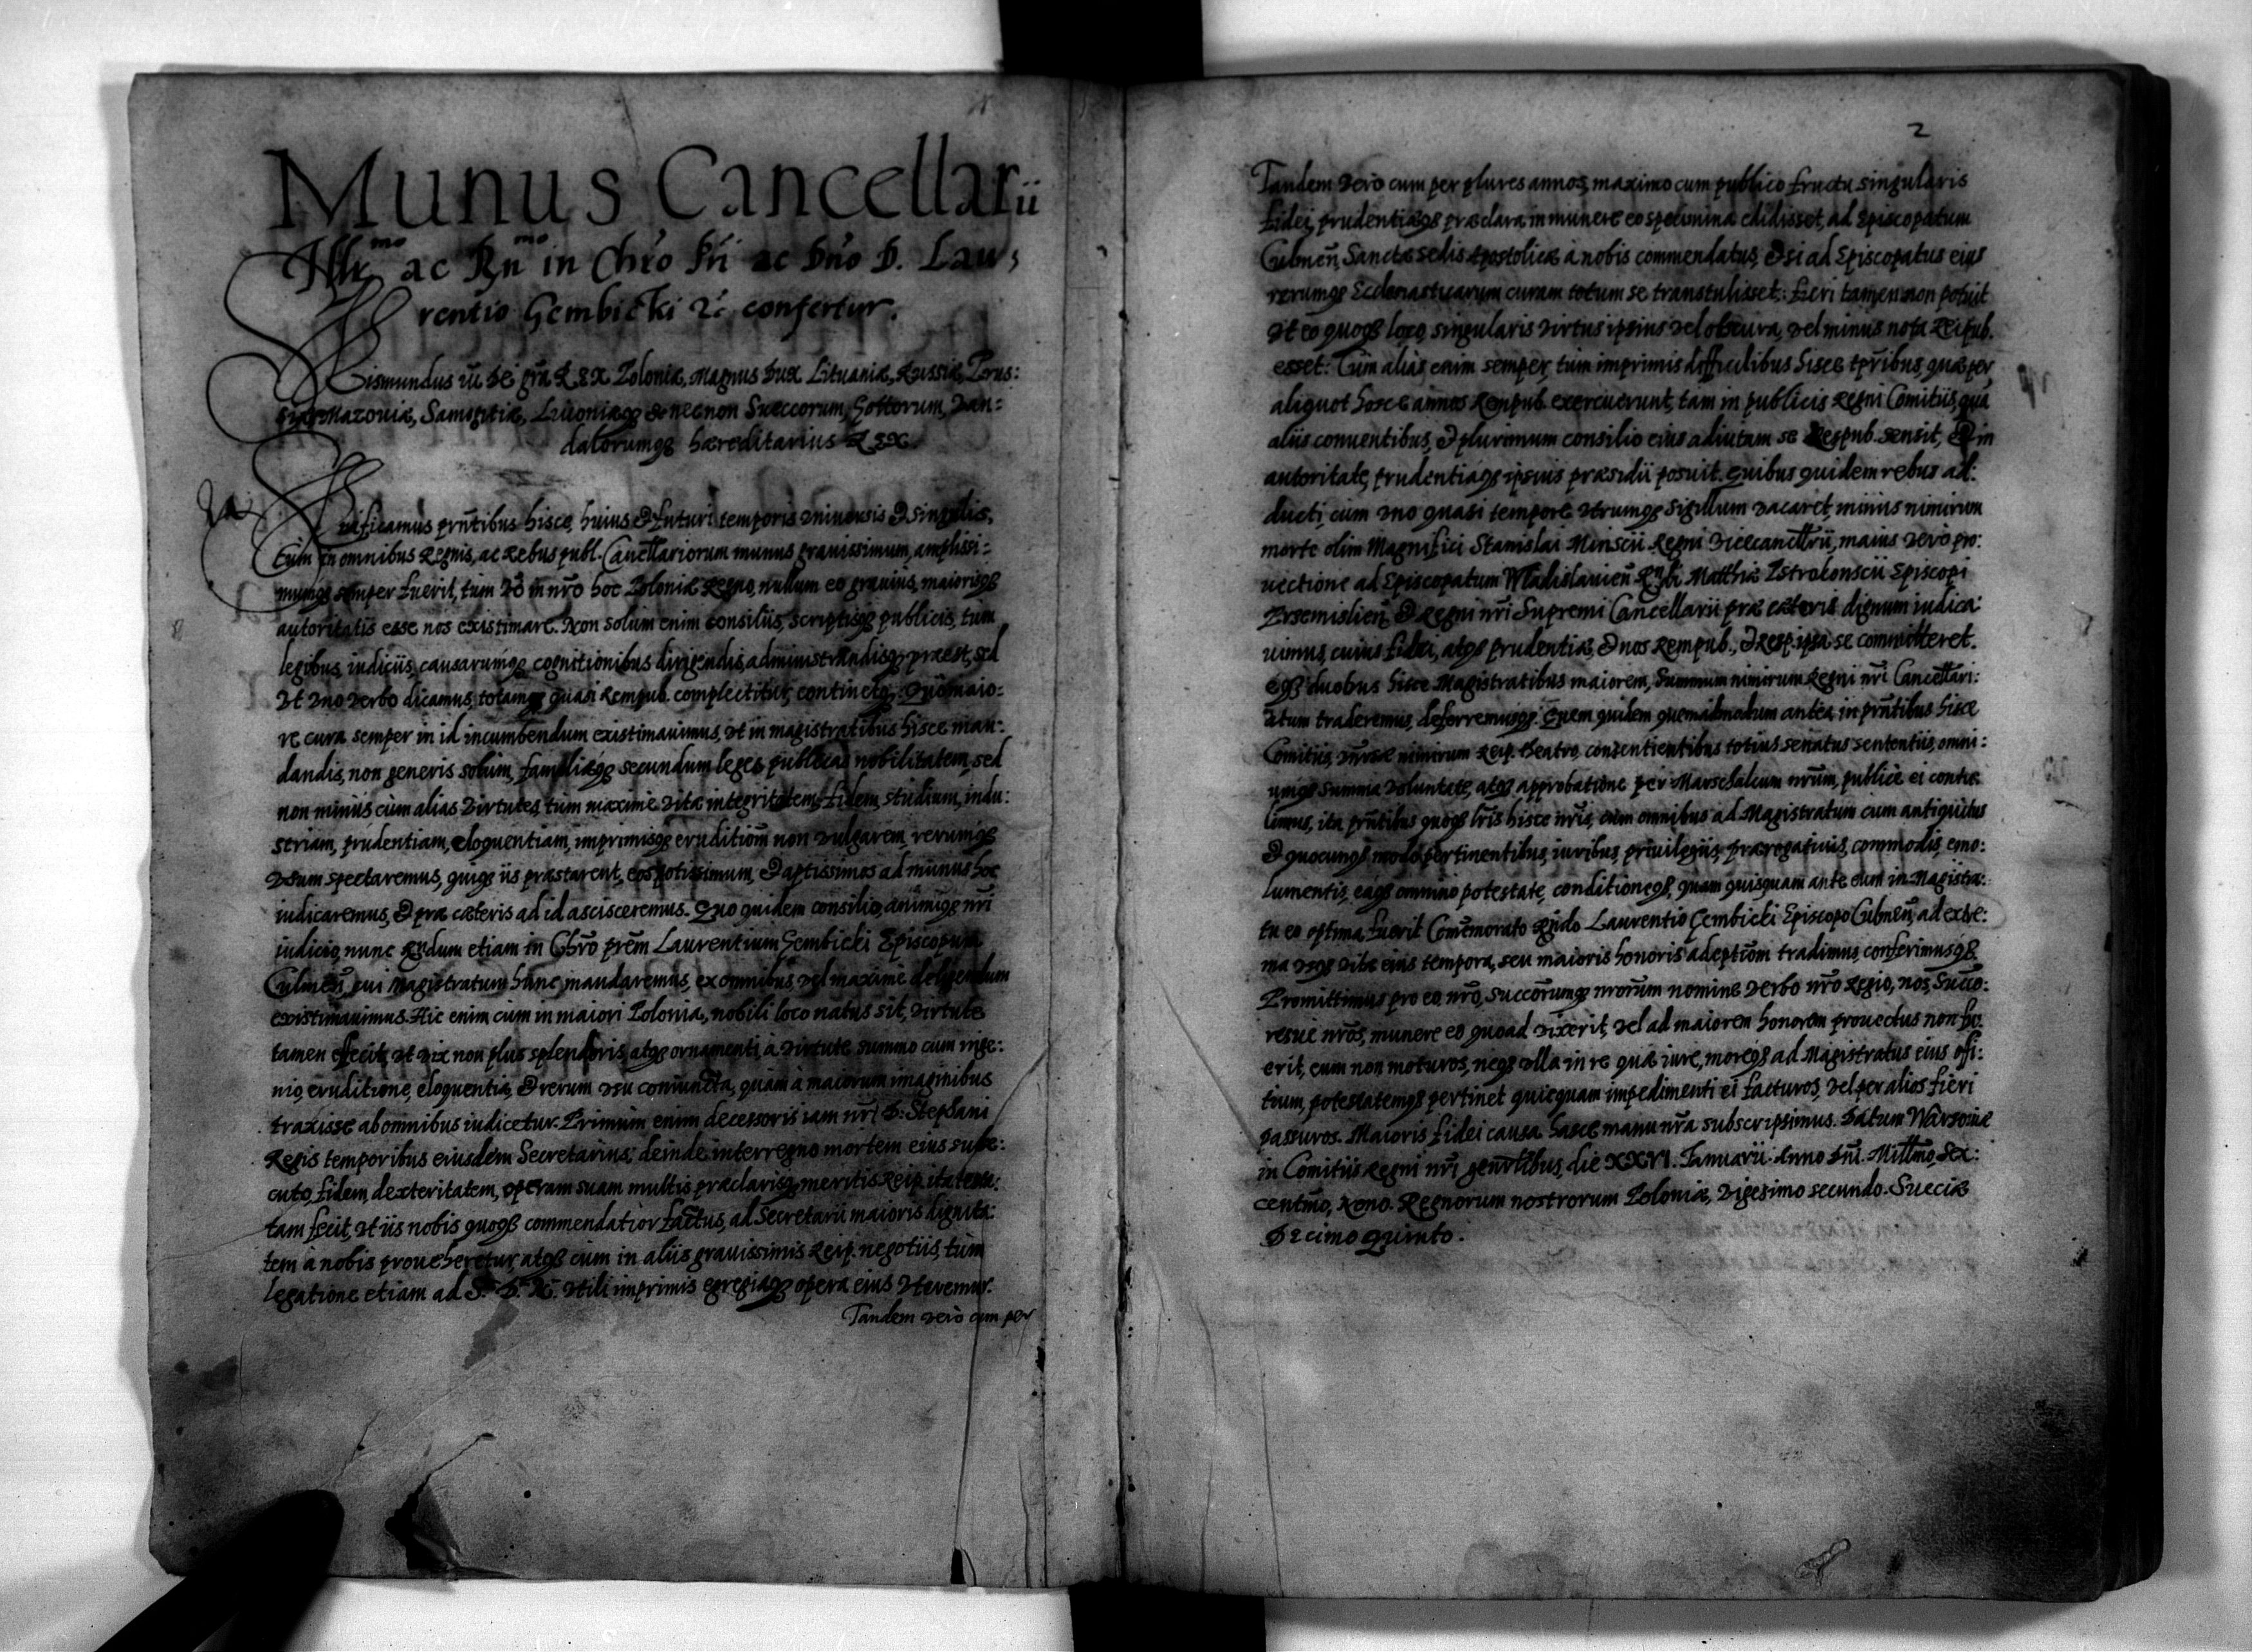 Munus Cancellarii
Illr^mo ac Rn^mo in Chro Pri ac Dno D. Lau,
rentio Gembicki &c confertur.
Sigismundus iii De gra REX Poloniæ, Magnus Dux Lituaniæ, Russiæ, Prus:
siæ, Mazoviæ, Samogitiæ, Livoniæqz & necnon Sueccorum, Gottorum, Van:
dalorumqz hæreditarius REX.
Significamus prntibus hisce, huius & futuri temporis universis & singulis,
Cum in omnibus Regnis, ac Rebuspubl. Cancellariorum munus gravissimum, amplissi:
mumqz semper fuerit, tum vo in nro hoc Poloniæ Regno, nullum eo gravius, maiorisqz
autoritatis esse nos existimare. Non solum enim consiliis, scriptisqz publicis, tum
legibus, iudiciis, causarumqz cognitionibus dirigendis, administrandisqz præest, sed
ut uno verbo dicamus, totamqz quasi Rempub. complectitur, continetqz. Quo maio:
re cura semper in id incumbendum existimavimus, ut in magistratibus hisce man:
dandis, non generis solum, familiæqz secundum leges publicas nobilitatem, sed
non minus cum alias virtutes, tum maxime vitæ integritatem, fidem, studium, indu:
striam, prudentiam, eloquentiam, imprimisqz eruditiom non vulgarem, rerumqz
usum spectaremus, quiqz iis præstarent, eos potissimum, & aptissimos ad munus hoc
iudicaremus, & præ cæteris ad id ascisceremus. Quo quidem consilio, animiqz nri
iudicio, nunc Rndum etiam in Chro prem Laurentium Gembicki Episcopum
Culmen, cui Magistratum hunc mandaremus, ex omnibus vel maxime deligendum
existimavimus. Hic enim cum in maiori Polonia, nobili loco natus sit, virtute
tamen effecit, ut vix non plus splendoris, atqz ornamenti, a virtute summo cum inge:
nio, eruditione, eloquentia, & rerum usu coniuncta, quam a maiorum imaginibus
traxisse ab omnibus iudicetur. Primum enim decessoris iam nri D. Stephani
Regis temporibus eiusdem Secretarius, deinde interregno mortem eius subse:
cuto, fidem, dexteritatem, operam suam multis præclarisqz meritis Reip. ita
tam fecit, ut iis nobis quoqz commendatior factus, ad Secretarii maioris dignita:
tem a nobis proveheretur, atqz cum in aliis gravissimis Reip. negotiis, tum
legatione etiam ad S. D. N. utili imprimis egregiaqz opera eius uteremur.
Tandem vero cum per
2
Tandem vero cum per plures annos, maximo cum publico fructu singularis
fidei, prudentiæqz præclara in munere eo specimina edidisset, ad Episcopatum
Culmen, Sanctæ sedis Apostolicæ a nobis commendatus, & si ad Episcopatus eius
rerumqz Ecclesiasticarum curam totum se transtulisset: fieri tamen non potuit
ut eo quoqz loco, singularis virtus ipsius vel obscura, vel minus nota Reipub.
esset: Cum alias enim semper, tum imprimis difficilibus hisce tpribus, quæ per
aliquot hosce annos Rempub. exercuerunt, tam in publicis Regni Comitiis, qua
aliis conventibus, & plurimum consilio eius adiutam se Respub. sensit, & in
autoritate, prudentiaqz ipsius præsidii posuit. Quibus quidem rebus ad:
ducti, cum uno quasi tempore utrumqz Sigillum vacaret, minus nimirum
morte olim Magnifici Stanislai Minscii Regni Vicecancellrii, maius vero pro:
vectione ad Episcopatum Wladislavien Rndi Matthiæ Pstrokonscii Episcopi
Præmislien, & Regni nri Supremi Cancellarii præ cæteris dignum iudica:
vimus, cuius fidei, atqz prudentiæ, & nos Rempub., & Resp. ipsa se committeret.
eqz duobus hisce Magistratibus maiorem, Summum nimirum Regni nri Cancellari:
atum traderemus, deferremusqz. Quem quidem quemadmodum antea in prntibus hisce
Comitiis, universæ nimirum Reip. theatro, consentientibus totius senatus sententiis, omni:
umqz summa voluntate, atqz approbatione per Marschalcum nrum, publice ei contu:
limus, ita prntibus quoqz lris hisce nris, cum omnibus ad Magistratum eum antiquitus
& quocunqz modo pertinentibus, iuribus, privilegiis, prærogativis, commodis, emo:
lumentis, eaqz omnino potestate, conditioneqz, quam quisquam ante eum in Magistra:
tu eo optima fuerit Commemorato Rndo Laurentio Gembicki Episcopo Culmen, ad extre:
ma usqz vitæ eius tempora, seu maioris honoris adeptiom tradimus, conferimusqz.
Promittimus pro eo, nro, Succorumqz nrorum nomine verbo nro Regio, nos, Succo:
resve nros, munere eo quoad vixerit, vel ad maiorem honorem provectus non fu:
erit, eum non moturos, neqz ulla in re quæ iure, moreqz ad Magistratus eius offi:
tium, potestatemqz pertinet quicquam impedimenti ei facturos, vel per alios fieri
passuros. Maioris fidei causa hasce manu nra subscripsimus. Datum Warsoviæ
in Comitiis Regni nri genrlibus, die XXVI. Ianuarii. Anno Dni. Millmo, Sex:
centmo, Nono. Regnorum nostrorum Poloniæ, vigesimo secundo. Sueciæ
Decimo quinto.